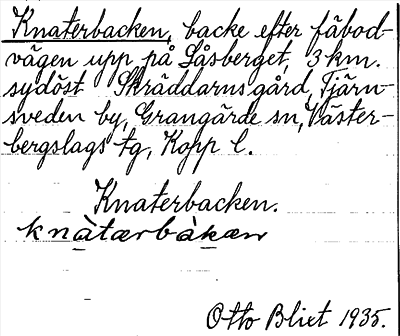 Knaterbacken, backe efter fäbod-
vägen upp på Låsberget, 3 km.
sydöst Skräddarns gård, Tjärn-
sveden by, Grangärde sn, Väster-
bergslags tg, Kopp l.
Knaterbacken.
knàtærbàkæn
Otto Blixt 1935.